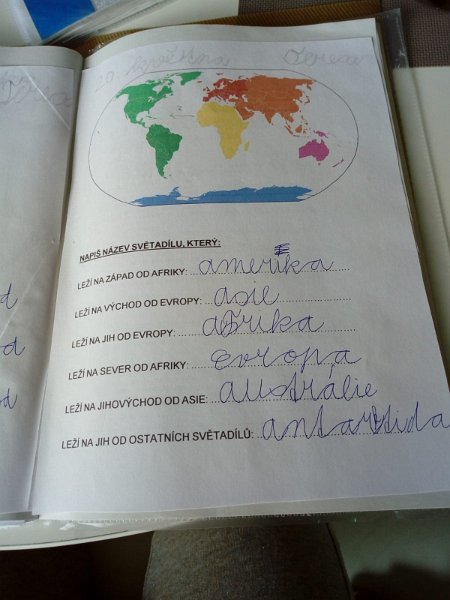 20. května Tereza
NAPIŠ NÁZEV SVĚTADÍLU, KTERÝ:
LEŽÍ NA ZÁPAD OD AFRIKY: amerika
LEŽÍ NA VÝCHOD OD EVROPY: asie
LEŽÍ NA JIH OD EVROPY: afrika
LEŽÍ NA SEVER OD AFRIKY: evropa
LEŽÍ NA JIHOVÝCHOD OD ASIE: austrálie
LEŽÍ NA JIH OD OSTATNÍCH SVĚTADÍLŮ: antarktida